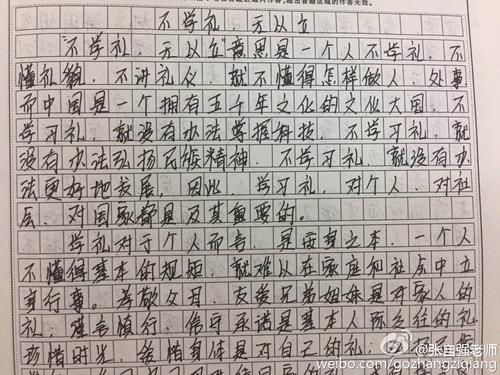 超出答题区域的作答无效。
不学礼，无以立
“不学礼，无以立”意思是一个人不学礼，不
懂礼貌，不讲礼仪，就不懂得怎样做人、处事
而中国是一个拥有五千年文化的文化大国，不
学习礼，就没有办法掌握科技，不学习礼，就
没有办法弘扬民族精神，不学习礼，就没有办
法更好地发展，因此，学习礼，对个人，对社
会，对国家都是及其重要的。
学礼对于个人而言，是安身之本，一个人
不懂得基本的规矩，就难以在家庭和社会中立
身行事。孝敬父母，友爱兄弟姐妹是对家人的
礼，谨言慎行，信守承诺是基本人际交往的礼
珍惜时光，爱惜身体是对自己的礼；
@张自强老师
weibo.com/gozhangziqiang